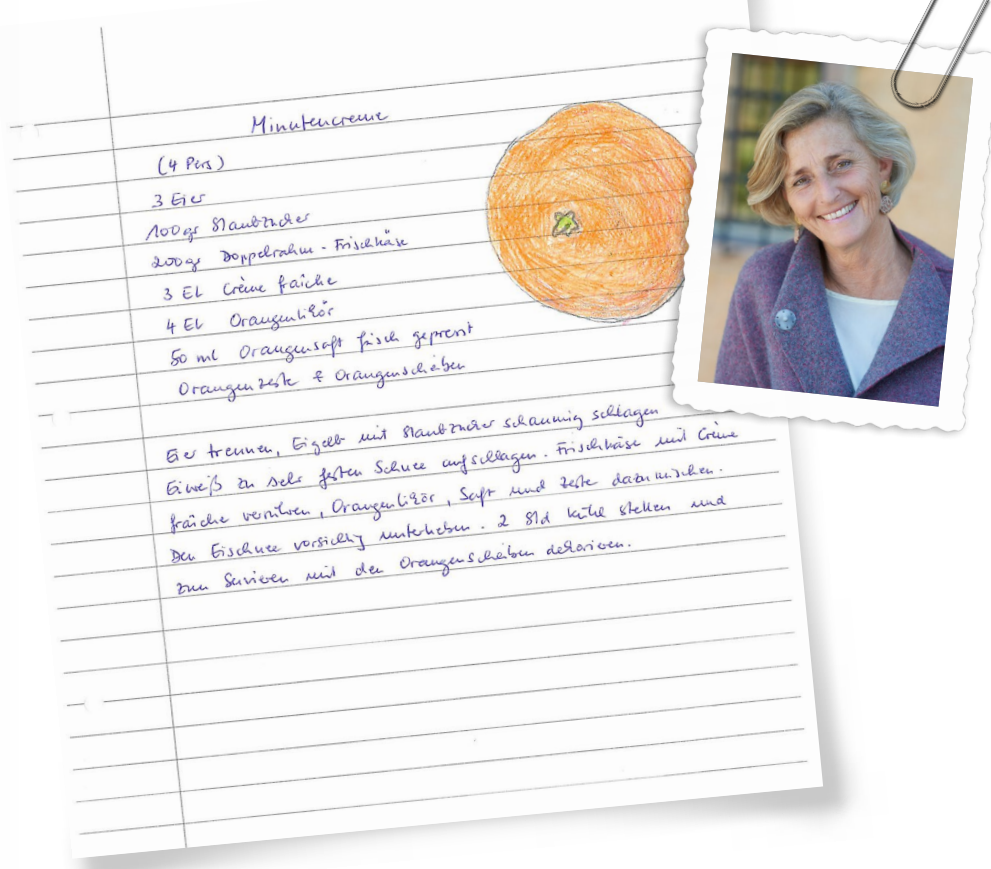 Minutencreme
(4 Pers)
3 Eier
100 gr Staubzucker
200 gr Doppelrahm - Frischkäse
3 EL Crème fraîche
4 EL Orangenlikör
50 ml Orangensaft frisch gepresst
Orangenzeste & Orangenscheiben
Eier trennen, Eigelb mit Staubzucker schaumig schlagen
Eiweiß zu sehr festen Schnee aufschlagen. Frischkäse mit Crème
fraîche verrühren, Orangenlikör, Saft und Zeste dazumischen.
Den Eischnee vorsichtig unterheben. 2 Std kühl stellen und
zum Servieren mit den Orangenscheiben dekorieren.